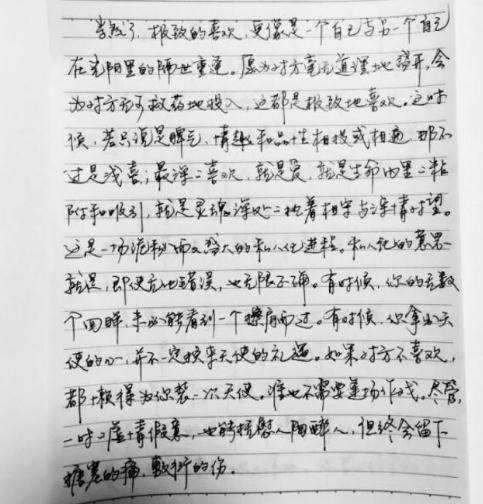 当然了，极致的喜欢，更像是一个自己与另一个自己
在光阴里的隔世重逢。愿为对方毫无道理地盛开，会
为对方无可救药地投入，这都是极致地喜欢。这时
候，若只说是脾气、情趣和品性相投或相通，那不
过是浅喜；最深的喜欢，就是爱，就是生命内里的粘
附和吸引，就是灵魂深处的执着相守与深情对望。
这是一场流动而又盛大的私人化进程。私人化的意思
就是，即使无地错误，也无限正确。有时候，你的无数
个回眸，未必能看到一个擦肩而过。有时候，你拿出天
使的心，并不一定换来天使的礼遇。如果对方不喜欢，
都懒得为你装一次天使。谁也不需要逢场作戏。尽管，
一时的虚情假意，也能抚慰人陶醉人，但终会留下
搪塞的痛，敷衍的伤。